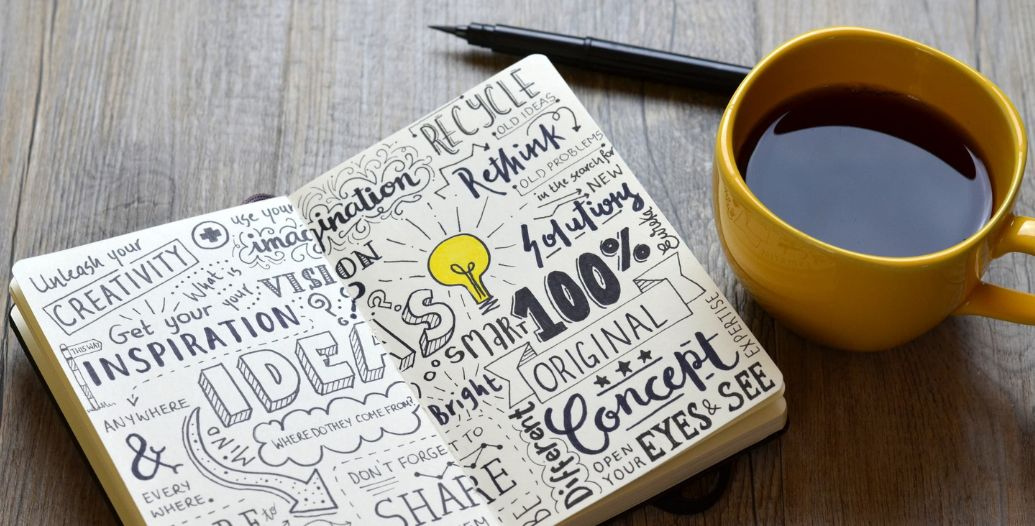 Unleash your
CREATIVITY
use your
imagination
What is
your VISION
Get your
INSPIRATION
THIS WAY
ANYWHERE
&
EVERY
WHERE.
IDEAS
MIND
WHERE DO THEY COME FROM?
DON'T FORGET TO
SHARE
RECYCLE
OLD IDEAS
Rethink
OLD PROBLEMS
in the search for
NEW
Solutions
SMART
100%
Bright
ORIGINAL
EXPERTISE
Concept
Different
OPEN
YOUR EYES & SEE
BE